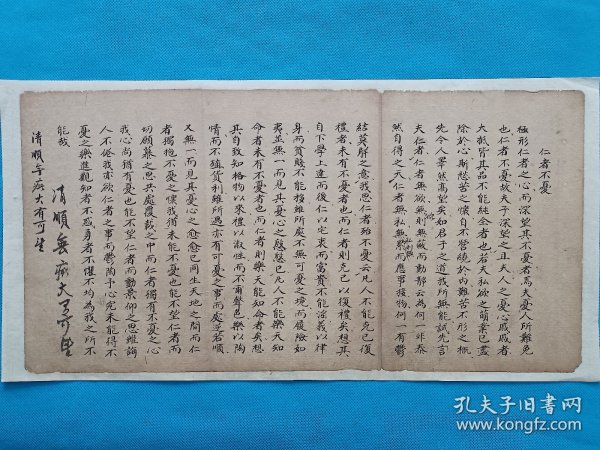 仁者不憂
極形仁者之心而深望其不憂者焉夫憂人所難免
也仁者不憂故夫子深望之且夫人之憂心戚戚者
大抵皆其品不能純全者也若夫私欲之萌業已盡
除於心斯愁苦之懷自不營繞於內難苦不形之概
先令人畢然高望矣如君子之道我所無能試先言
夫仁者仁者無欲無蔽而動靜云為何一非泰
然自得之天仁者無私無累而應事接物何一有鬱
結莫解之意我思仁者殆不憂云凡人不能克己復
禮者未有不憂者也而仁者則克己以復禮矣想其
自下學上達而後仁以宅衷而富貴不能淫義以律
身而貧賤不能移雖所處不無可憂之境而履險如
夷並無一而見其憂心之慇慇已凡人不能樂天知
命者未有不憂者也而仁者則樂天能知命者矣想
其自致知格物以來禮以淑性而不爾聲色樂以陶
情而不殖貨利雖所遇亦有可憂之事而處逆若順
又無一而見其憂心之愈愈已同生天地之間而仁
者獨殆不憂之懷我獨未能不憂也能不望仁者而
切願慕之思共處覆載之中而仁者獨有不憂之心
我心尚猶有憂也能不望仁者而動景仰之思雖誨
人不倦我亦欲仁者之事而鬱陶予心究未能得不
憂之樂進觀知者不惑勇者不懼不均為我之所不
能哉
清順無癡大有可望
清順無癡大有可望
孔夫子旧书网
www.kongfz.com